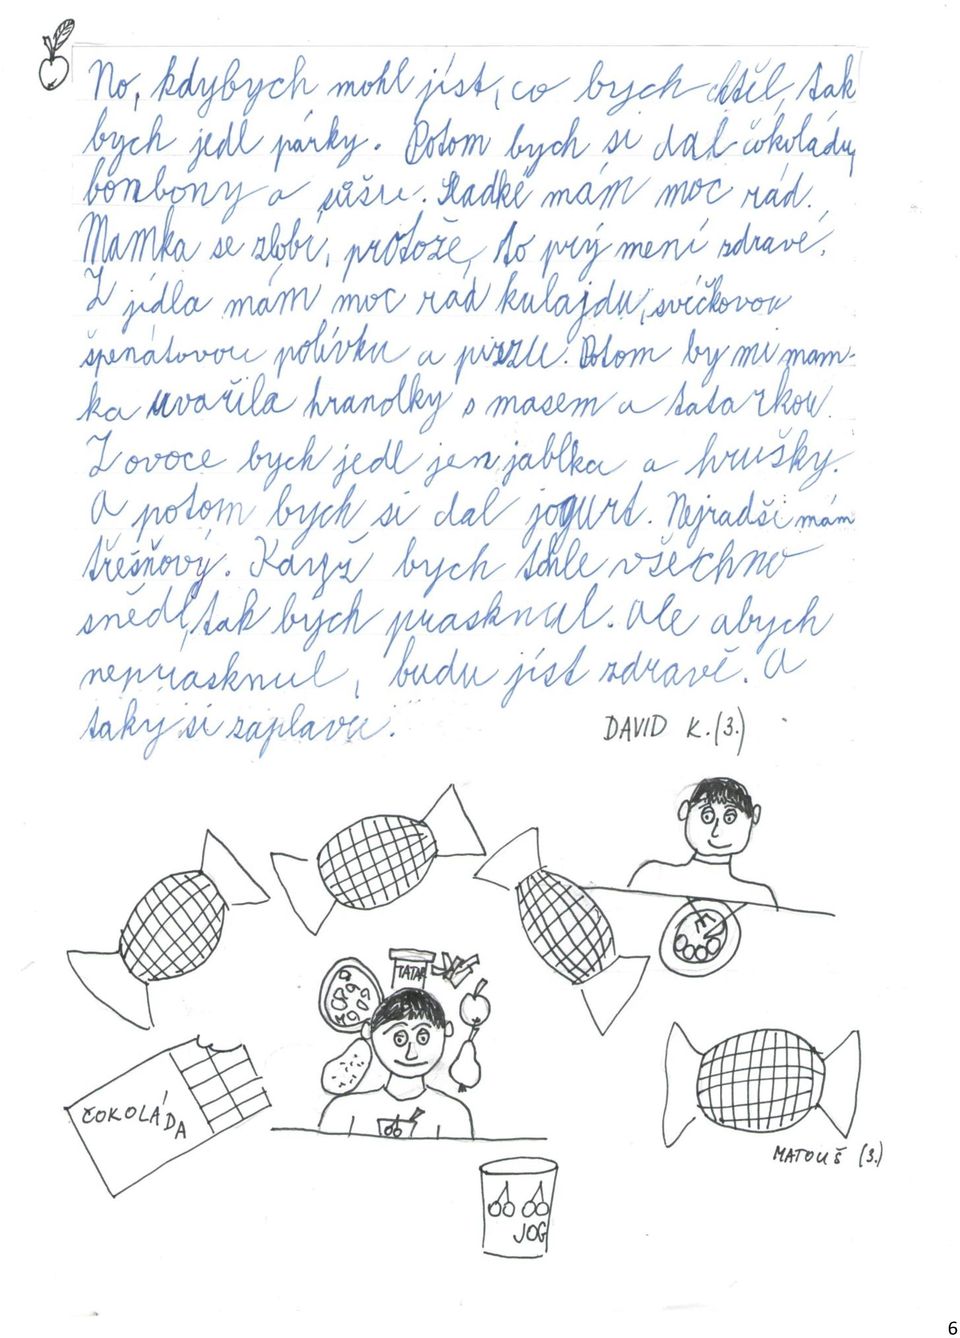 No, kdybych mohl jíst, co bych chtěl, tak
bych jedl párky. Potom bych si dal čokoládu,
bonbony a sůšu. Sladké mám moc rád.
Mamka se zlobí, protože, to prý mení zdravé.
Z jídla mám moc rád kulajdu, svíčkovou
špenátovou polívku a pizzu. Potom by mi mam-
ka uvařila hranolky s masem a tatarkou.
Z ovoce bych jedl jen jablka a hrušky.
A potom bych si dal jogurt. Nejradši mám
třešňový. Když bych tohle všechno
snědl, tak bych prasknul. Ale abych
neprasknul, budu jíst zdravě. A
taky si zaplavu.
DAVID K. (3.)
TATAR
ČOKOLÁDA
MATOUŠ (3.)
JOG
6